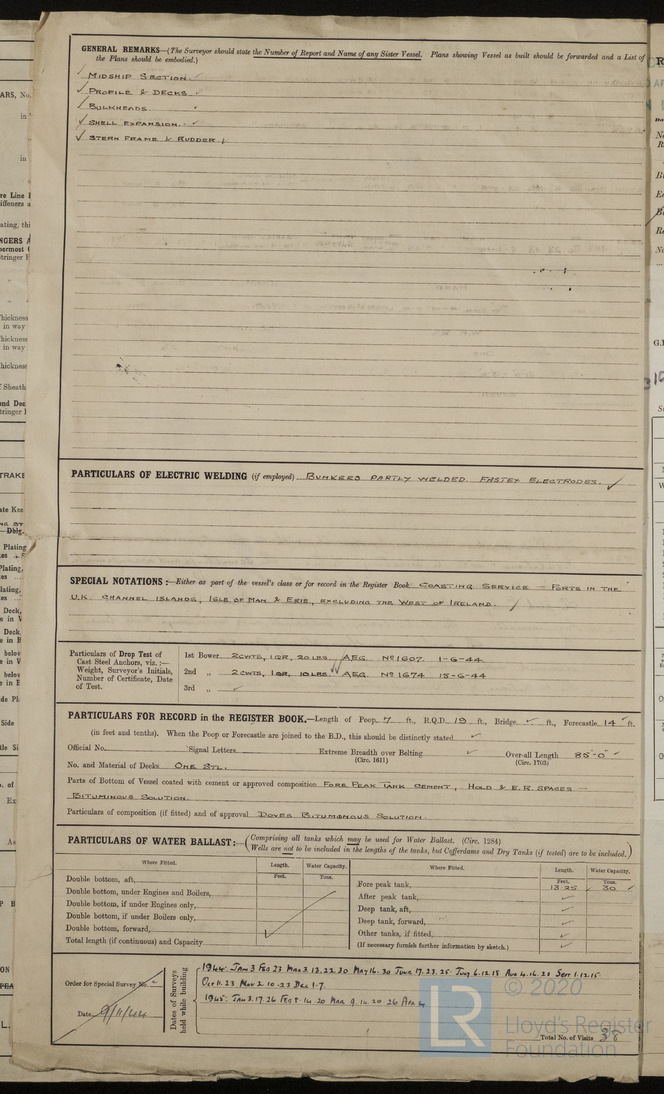 GENERAL REMARKS—(The Surveyor should state the Number of Report and Name of any Sister Vessel. Plans showing Vessel as built should be forwarded and a List of
the Plans should be embodied.)
✓ MIDSHIP SECTION. ✓
✓ PROFILE & DECKS. ✓
✓ BULKHEADS.
✓ SHELL EXPANSION. ✓
✓ STERN FRAME & RUDDER
PARTICULARS OF ELECTRIC WELDING (if employed) BUNKERS PARTLY WELDED. FASTEX ELECTRODES. ✓
SPECIAL NOTATIONS:—Either as part of the vessel's class or for record in the Register Book COASTING SERVICE — PORTS IN THE
U.K. CHANNEL ISLANDS, ISLE OF MAN & EIRE, EXCLUDING THE WEST OF IRELAND.
Particulars of Drop Test of
Cast Steel Anchors, viz.:—
Weight, Surveyor's Initials,
Number of Certificate, Date
of Test.
1st Bower 2CWTS, 1QR, 20LBS ✓ A.E.G. No 1607. 1-6-44
2nd „ 2CWTS, 1QR, 10LBS ✓ A.E.G. No 1674 15-6-44
3rd „ ✓
PARTICULARS FOR RECORD in the REGISTER BOOK.—Length of Poop 7 ft., R.Q.D. 19 ft., Bridge ✓ ft., Forecastle 14 ft.
(in feet and tenths). When the Poop or Forecastle are joined to the B.D., this should be distinctly stated ✓
Official No. Signal Letters Extreme Breadth over Belting ✓ Over-all Length 85'-0" ✓
(Circ. 1611) (Circ. 1703)
No. and Material of Decks ONE STL.
Parts of Bottom of Vessel coated with cement or approved composition FORE PEAK TANK CEMENT, HOLD & E.R. SPACES —
BITUMINOUS SOLUTION.
Particulars of composition (if fitted) and of approval DOVES BITUMINOUS SOLUTION.
PARTICULARS OF WATER BALLAST:—(Comprising all tanks which may be used for Water Ballast. (Circ. 1284)
Wells are not to be included in the lengths of the tanks, but Cofferdams and Dry Tanks (if tested) are to be included.)
Where Fitted. Length. Water Capacity. Where Fitted. Length. Water Capacity.
Feet. Tons. Feet. Tons.
Double bottom, aft, Fore peak tank, 13.25 ✓ 30 ✓
Double bottom, under Engines and Boilers, After peak tank, ✓
Double bottom, if under Engines only, Deep tank, aft, ✓
Double bottom, if under Boilers only, Deep tank, forward, ✓
Double bottom, forward, Other tanks, if fitted, ✓
Total length (if continuous) and Capacity (If necessary furnish further information by sketch.)
Order for Special Survey No.
Date 9/11/44
Dates of Surveys
held while building
1944: JAN 3 FEB 23 MAR 3.13.22.30 MAY 16.30 JUNE 17.23.25 JULY 6.12.18 AUG 4.16.21 SEPT 1.12.15
OCT 11.23 NOV 2.10.23 DEC 1.7.
1945: JAN 3.17.26 FEB 8.14.20 MAR 9.14.20 26 APR 4
Total No. of Visits 38
LR
© 2020
Lloyd's Register
Foundation